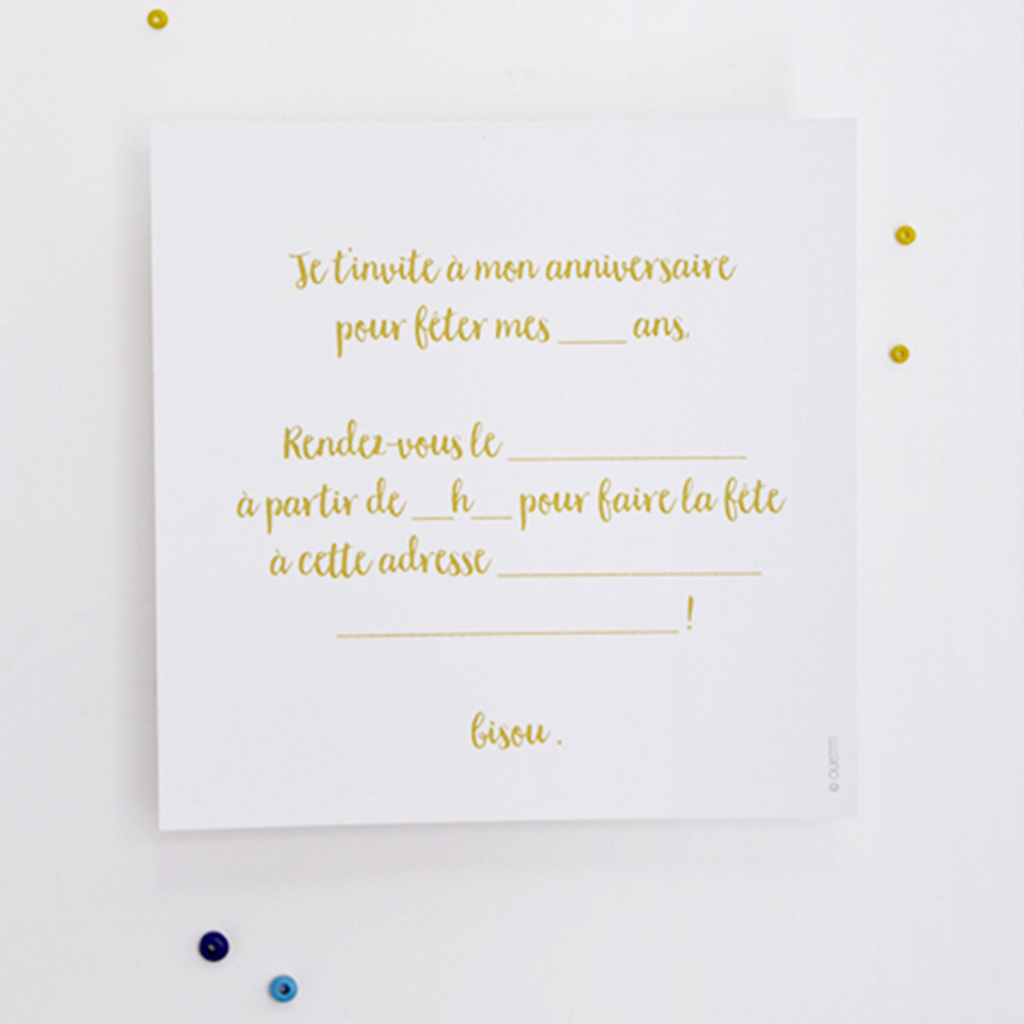 Je t'invite à mon anniversaire
pour fêter mes ____ ans.
Rendez-vous le ______________
à partir de __h__ pour faire la fête
à cette adresse ________________
____________________ !
bisou .
© OUISTITI